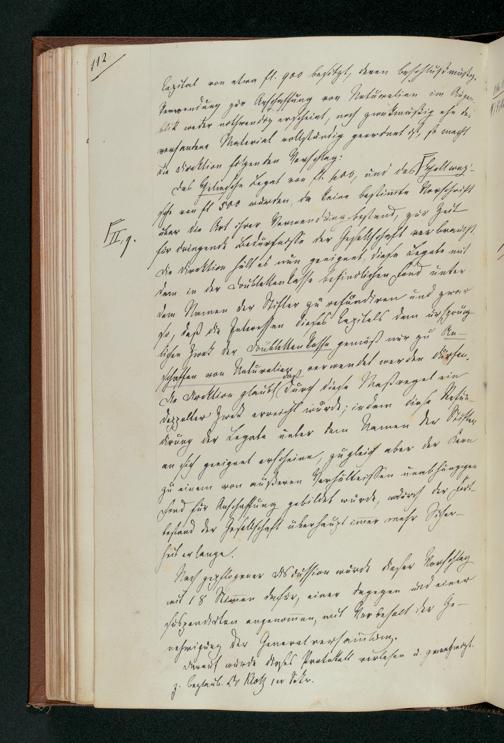 112
Capital von etwa fl. 900 besitzt, deren beschlußmäßige
Verwendung zur Anschaffung von Naturalien im Augen-
blick weder nothwendig erscheint, noch zweckmäßig ehe das
vorhandene Material vollständig geordnet ist, so macht
die Direktion folgenden Vorschlag:
Das Legat von fl. und das
sche von fl 500 wurden, da keine bestimmte Vorschrift
über die Art ihrer Verwendung bestand, zur Zeit
für dringende Bedürfnisse der Gesellschaft verbraucht
Die Direktion hält es nun geeignet, diese Legate mit
dem in der Doublettenkasse befindlichen Fond unter
dem Namen der Stifter zu refundiren und zwar
so, daß die Interessen dieses Capitals dem ursprüng-
lichen Zweck der Doublettenkasse gemäß nur zu An-
schaffen von Naturalien verwendet werden dürfen.
Die Direktion glaubt, daß durch diese Maßregel ein
doppelter Zweck erreicht würde; indem diese Refun-
dirung der Legate unter dem Namen der Stifter
an sich geeignet erscheine, zugleich aber der Kern
zu einem von äußeren Verhältnissen unabhängigen
Fond für Anschaffung gebildet würde, wodurch der Fort-
bestand der Gesellschaft überhaupt immer mehr Sicher-
heit erlange.
Nach gepflogener Discussion wurde dieser Vorschlag
mit 18 Stimmen dafür, einer dagegen und einer
suspendirten angenommen, mit Vorbehalt der Ge-
nehmigung der Generalversammlung.
Darauf wurde dieses Protokoll verlesen u. genehmigt.
z. beglaub. Dr Kloß Sekr.